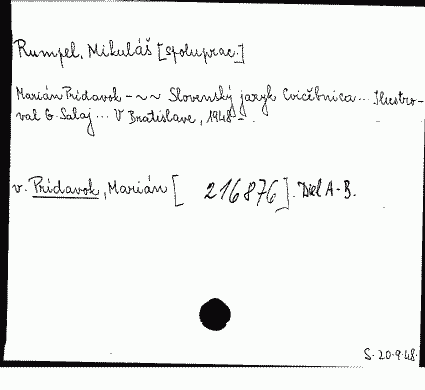 Rumpel, Mikuláš [spoluprac.]
Marián Prídavok - ~ ~ Slovenský jazyk Cvičebnica... Ilustro-
val G. Salaj... V Bratislave, 1948 -
v. Prídavok, Marián [ 216876]. Diel A-B.
S. 20.9.48.